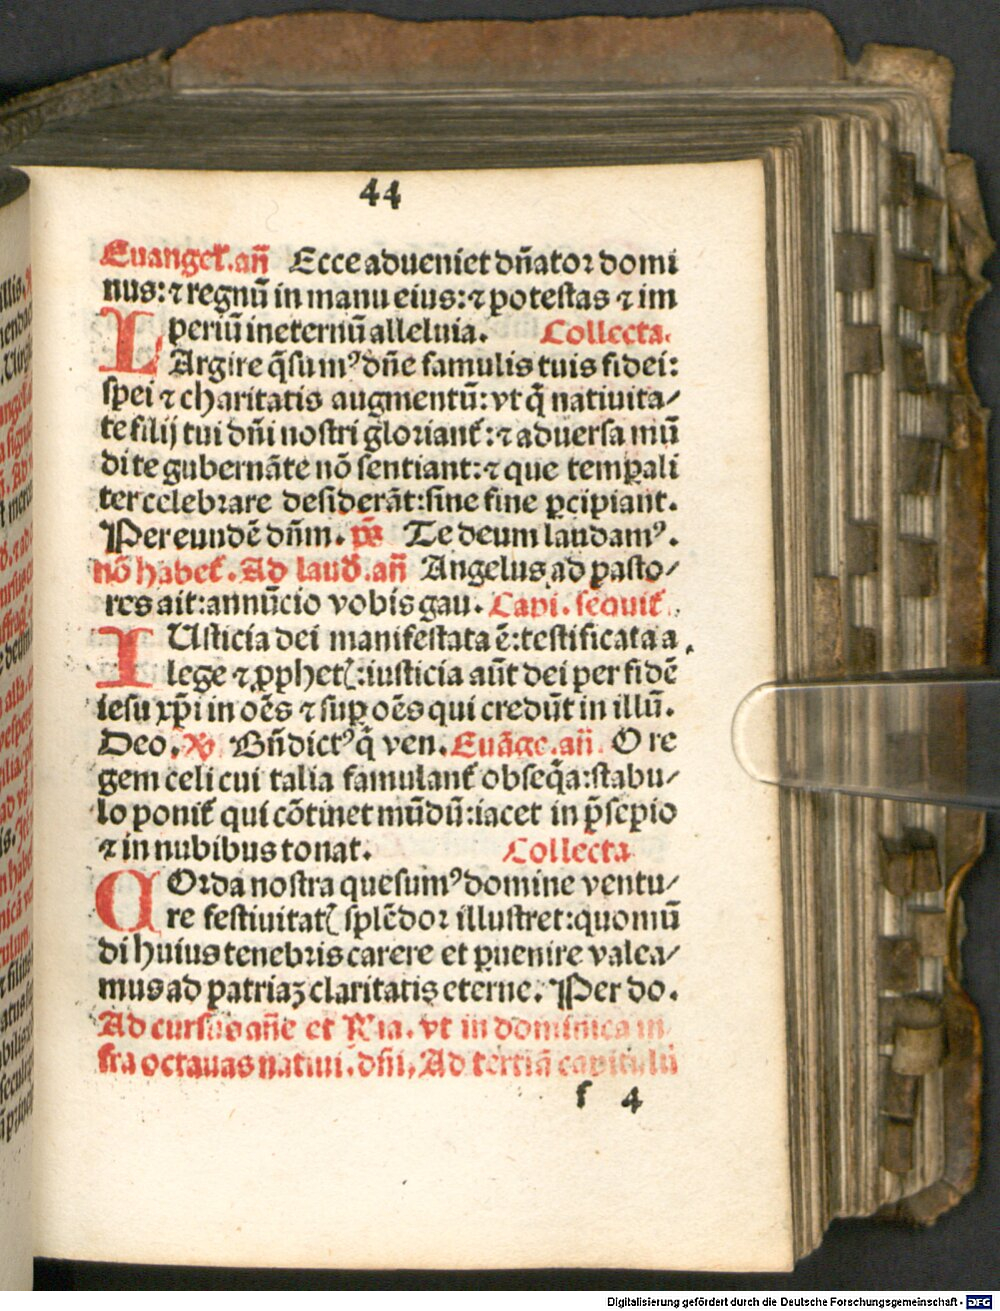 44
Euangeł.an̄ Ecce adueniet dn̄ator domi
nus: ⁊ regnū in manu eius: ⁊ potestas ⁊ im
periū in eternū alleluia. Collecta.
LArgire q̄sumꝰ dn̄e famulis tuis fidei:
spei ⁊ charitatis augmentū: vt q̄ natiuita/
te filij tui dn̄i nostri gloriant᷑: ⁊ aduersa mū
di te gubernāte nō sentiant: ⁊ que temꝑali
ter celebrare desiderāt: sine fine ꝑcipiant.
Per eundē dn̄m. p̄s Te deum laudamꝰ.
nō habet᷑. Ad laud̄. an̄ Angelus ad pasto/
res ait: annūcio vobis gau. Capi. sequit᷑.
IUsticia dei manifestata ē: testificata a
lege ⁊ ꝓphetꝭ: iusticia aūt dei per fidē
iesu xp̄i in oēs ⁊ suꝑ oēs qui credūt in illū.
Deo. ꝟ Bn̄dictꝰ q̄ ven. Euāge. an̄. O re
gem celi cui talia famulant᷑ obseq̄a: stabu/
lo ponit᷑ qui cōtinet mūdū: iacet in p̄sepio
⁊ in nubibus tonat. Collecta
COrda nostra quesumꝰ domine ventu/
re festiuitatꝭ splēdor illustret: quo mū
di huius tenebris carere et ꝑuenire valea/
mus ad patriaꝫ claritatis eterne. Per do.
Ad cursus an̄e et Ria. vt in dominica in
fra octauas natiui. dn̄i, Ad tertiā capitulū
f 4
Digitalisierung gefördert durch die Deutsche Forschungsgemeinschaft - DFG